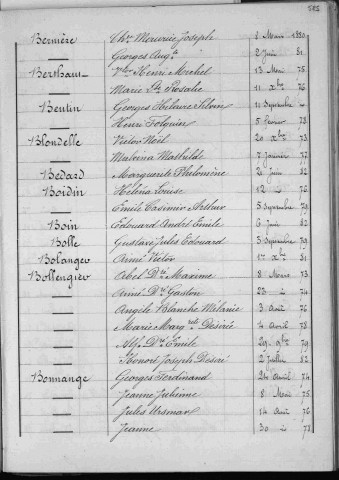 Bernière Chs Maurice Joseph 8 Mars 1880
Georges Augte 2 Juin 81
Berthaut Vtor Henri Michel 13 Mai 75
Marie Rosalie 11 Xbre 76
Bentin Georges Hilaire 11 Septembre
Henri Folquier 5 Février 78
Blondelle Victor Noël 20 Xbre 73
Malvina Mathilde 7 Janvier 77
Bedard Marguerite Philomène 21 Juin 82
Boidin Héléna Louise 12 76
Emile Casimir Arthur 5 Septembre 79
Boin Edouard André Emile 6 Juin 82
Bolle Gustave Jules Edouard 3 Septembre 79
Bolanger Aimé Victor 1er Xbre 81
Bollengier Abel Dré Maxime 8 Mars 73
Aimé Dré Gaston 23 74
Angèle Blanche Mélanie 3 Août 76
Marie Margte Désirée 4 Avril 78
Alf. Dré Emile 29 9bre 79
Honoré Joseph Désiré 2 Juillet 82
Bonnange Georges Ferdinand 24 Avril 74
Jeanne Julienne 8 Mai 75
Jules Ursmar 14 Août 76
Jeanne 30 78